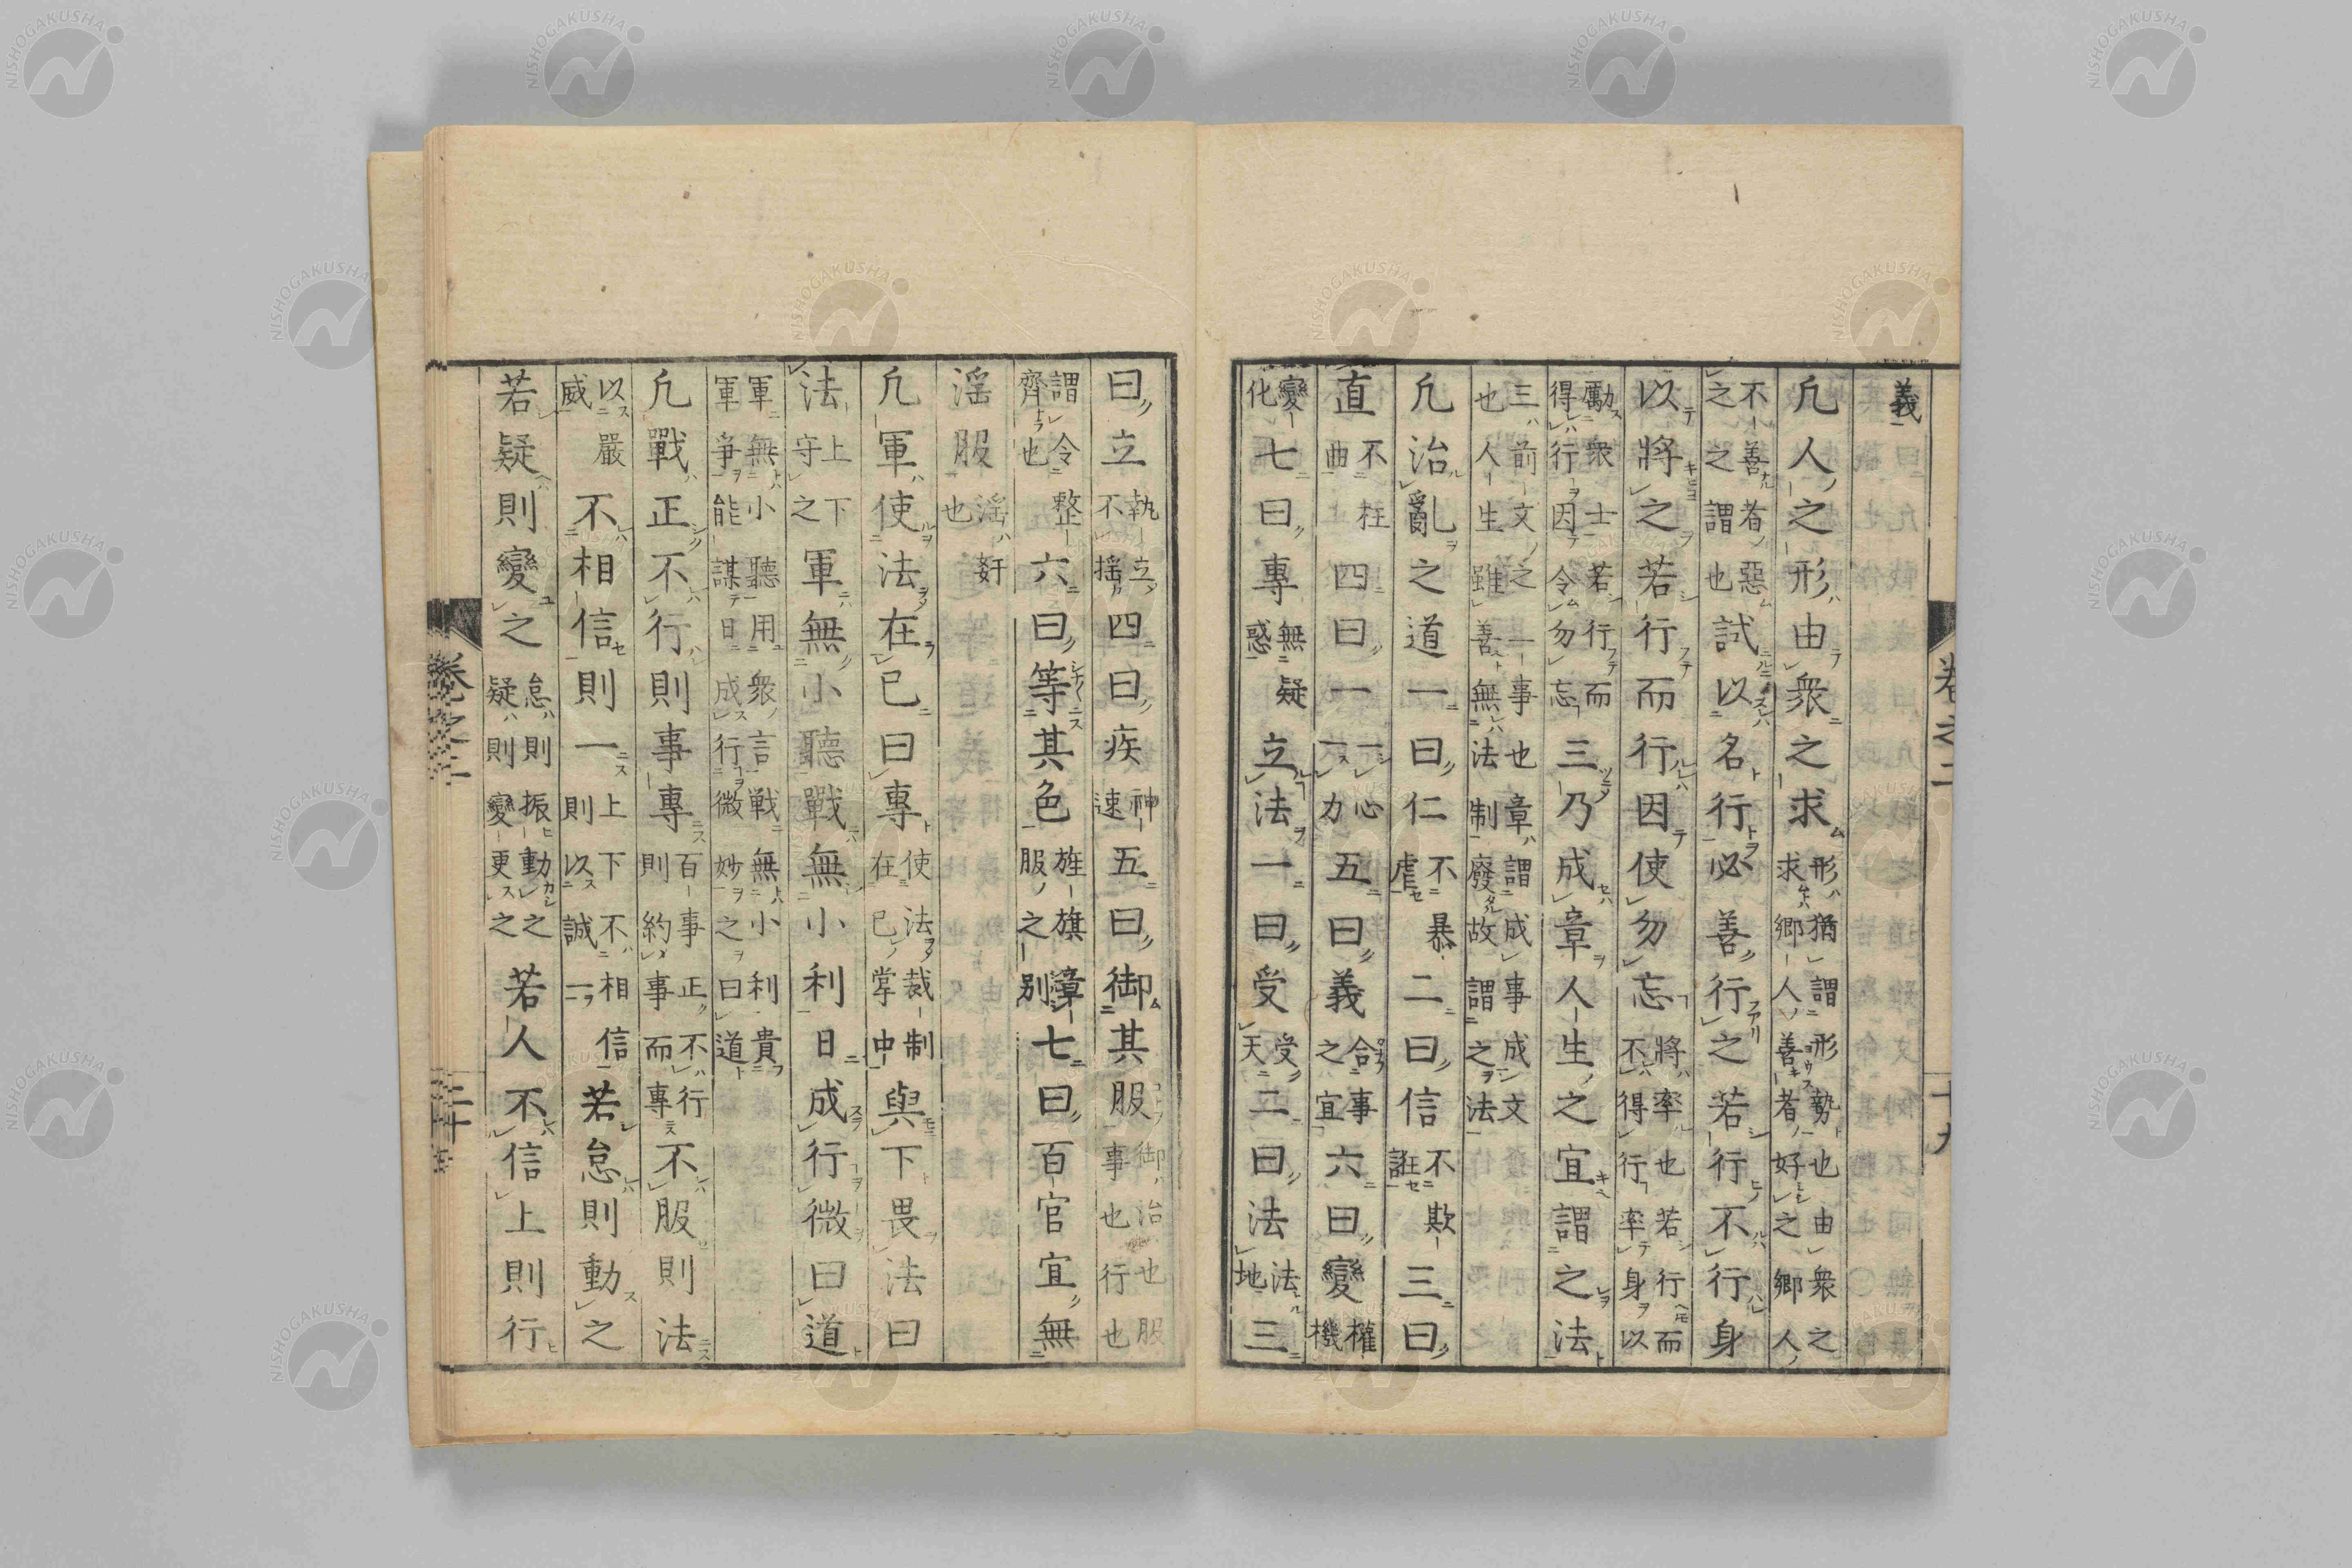 卷之二　十九
義
凡人之形由衆之求形猶謂形勢也由衆之求鄉人善者好之鄉人
不善者惡之之謂也試以名行必善行之若行不行身
以將之若行而行因使勿忘將率也若行而不得行率身以
勵衆士若行而得行因令勿忘三乃成章人生之宜謂之法
三前文之一事也章謂成事成文也人生雖善無法制廢故謂之法
凡治亂之道一曰仁不暴虐二曰信不欺誑三曰
直不枉曲四曰一一心一力五曰義合事之宜六曰變權機
變化七曰專無疑惑立法一曰受受天二曰法法地三
曰立執立不搖四曰疾神速五曰御其服御治也服事也行也
謂令整齊也六曰等其色旌旗章服之別七曰百官宜無
淫服淫奸也
凡軍使法在己曰專使法裁制在己掌中與下畏法曰
法上下守之軍無小聽戰無小利日成行微曰道
軍無小聽用衆言戰無小利貴軍爭能謀日成行微妙之曰道
凡戰正不行則事專百事正不行則約事而專不服則法
以嚴威不相信則一上下不相信則以誠一若怠則動之
若疑則變之怠則振動之疑則變更之若人不信上則行
卷之二　二十
NISHOGAKUSHA